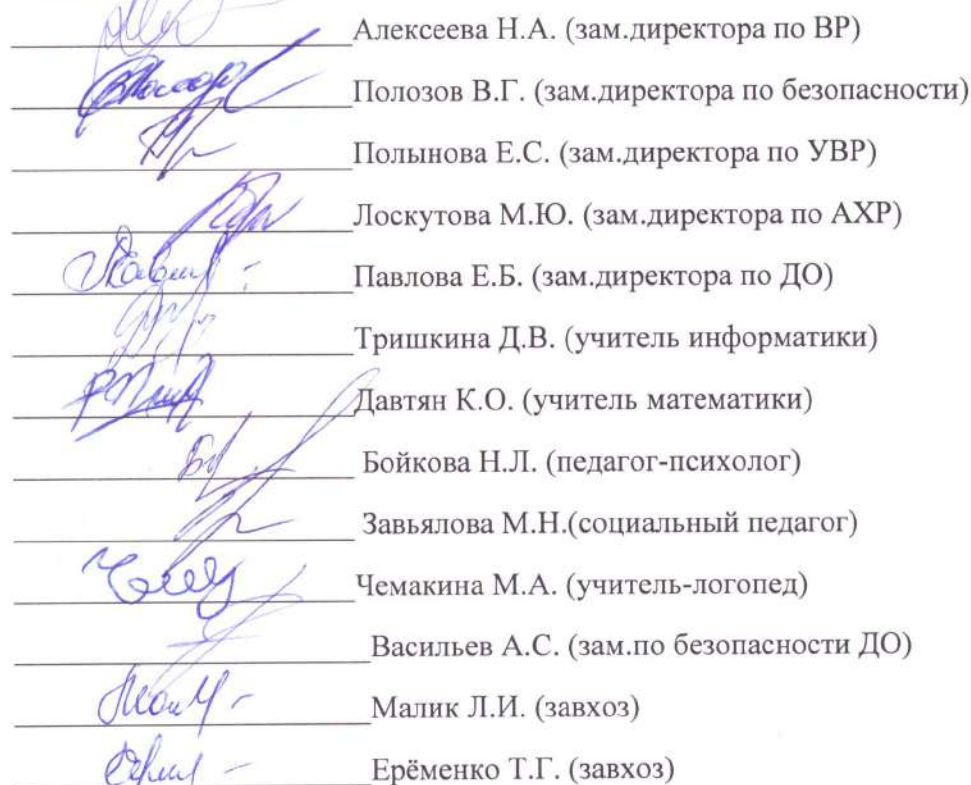 Алексеева Н.А. (зам.директора по ВР)
Полозов В.Г. (зам.директора по безопасности)
Полынова Е.С. (зам.директора по УВР)
Лоскутова М.Ю. (зам.директора по АХР)
Павлова Е.Б. (зам.директора по ДО)
Тришкина Д.В. (учитель информатики)
Давтян К.О. (учитель математики)
Бойкова Н.Л. (педагог-психолог)
Завьялова М.Н.(социальный педагог)
Чемакина М.А. (учитель-логопед)
Васильев А.С. (зам.по безопасности ДО)
Малик Л.И. (завхоз)
Ерёменко Т.Г. (завхоз)